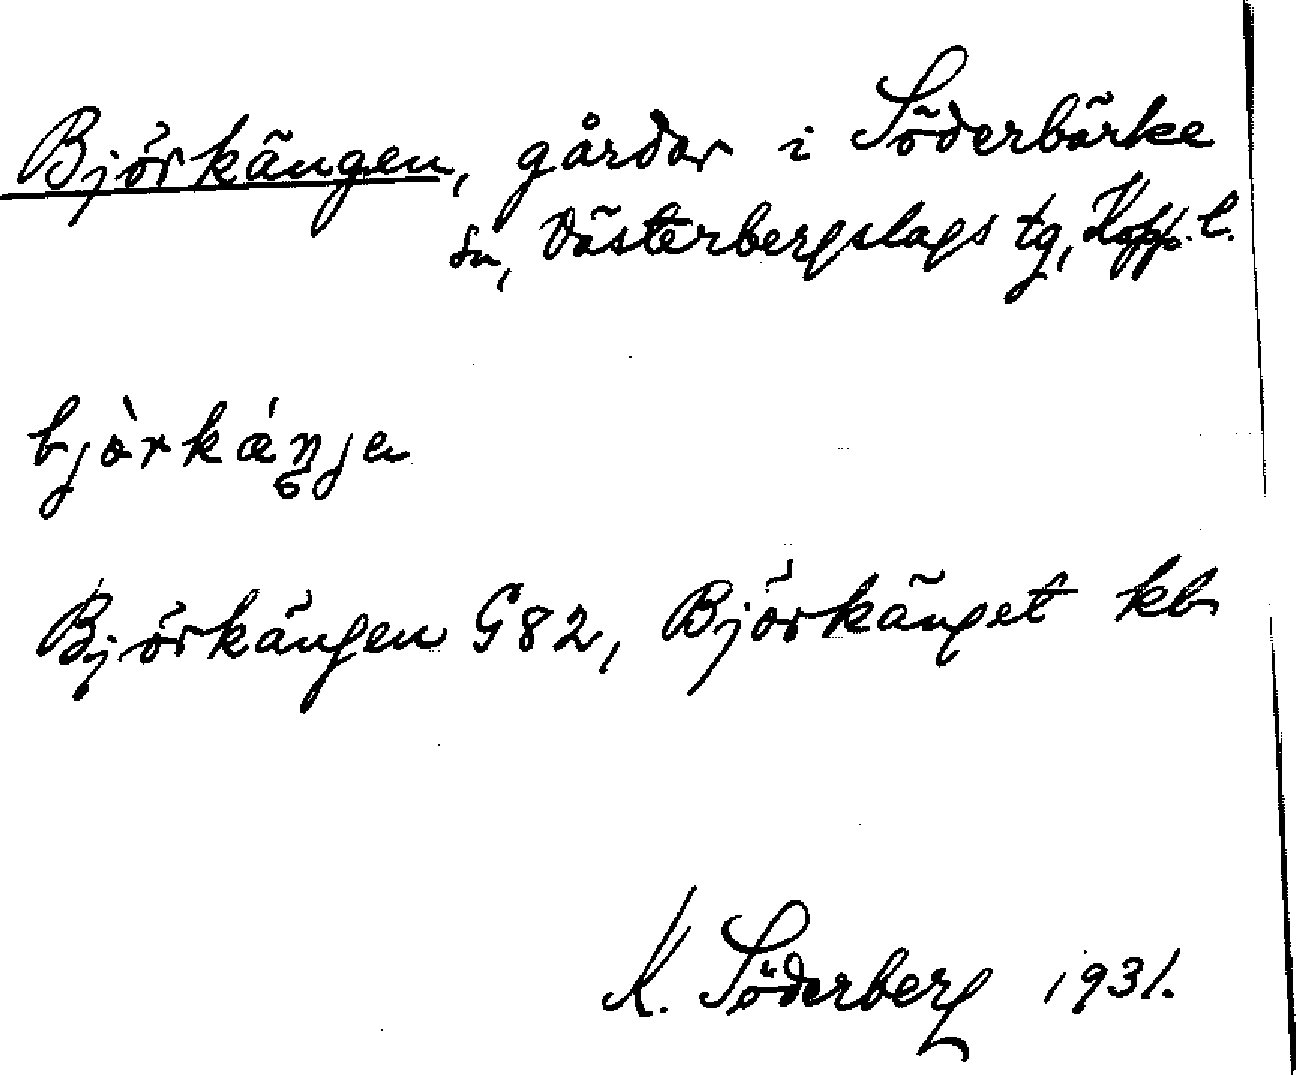 Björkängen, gårdar i Söderbärke
sn, Västerbergslags tg, Kopp. l.
bjὼrkǽŋja
Björkängen G82, Björkänget kb
K. Söderberg 1931.